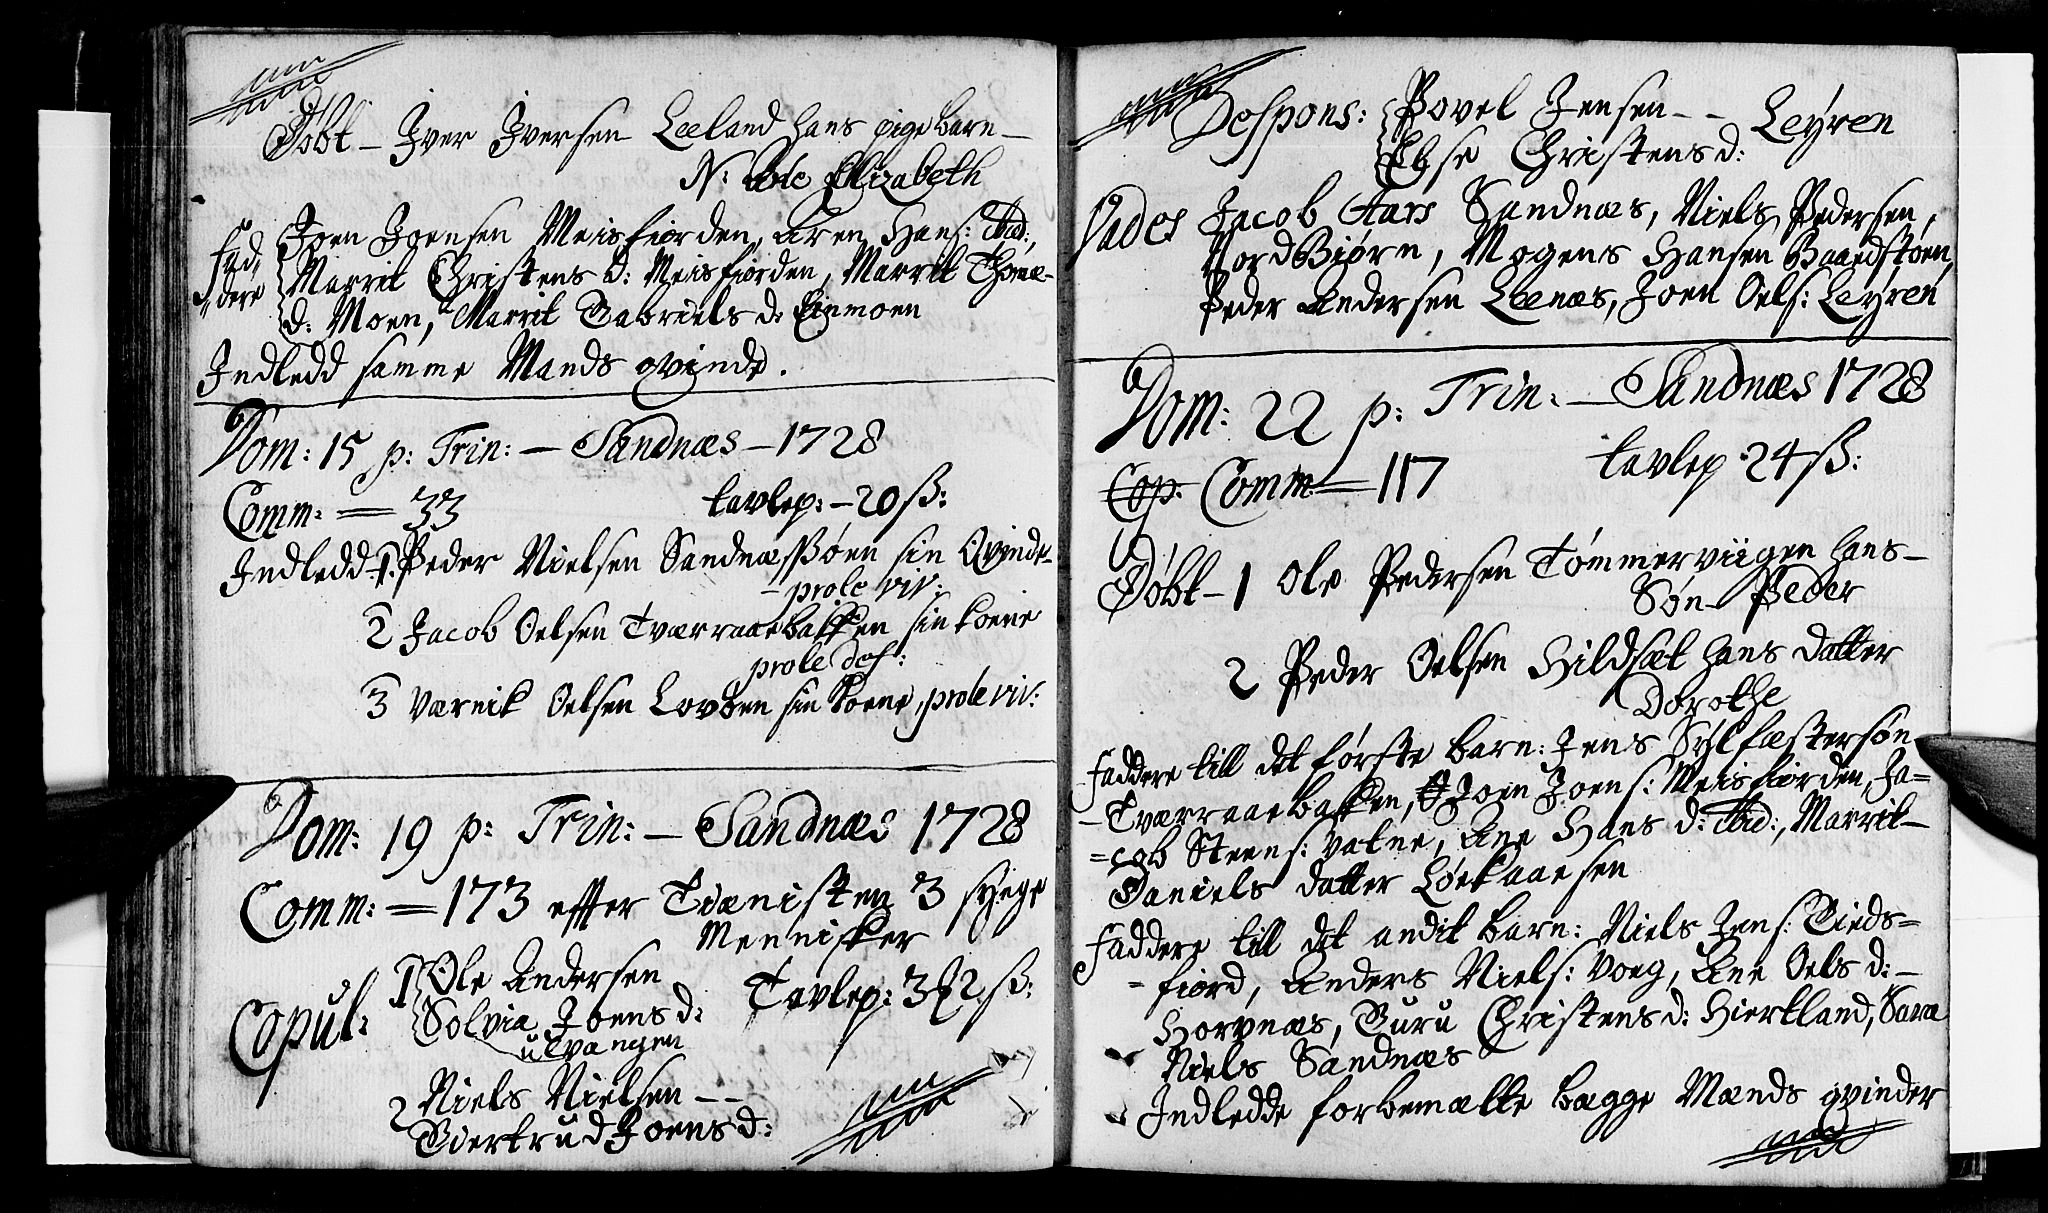 Døbt - Jver Jversen Leeland hans pigebarn -
N: Elizabeth
Fad,
dere
Joen Joensen Meisfiorden, Aren Hans: Ibid:,
Marrit Christens d: Meisfiorden, Marrit Thomæ-
d: Moen, Marrit Gabriels d:
Indledd samme Mands qvinde.
Dom: 15 p: Trin: - Sandnæs - 1728
Comm: = 33 tavlep: - 20 ß:
Indledd - 1. Peder Nielsen Sandnæssøen sin Qvinde-
- prole viv:
2 Jacob Oelsen Tværraaebakken sin koene
prole def:
3 Værnik Oelsen Lovöen sin koene, prole viv:
Dom: 19 p: Trin: - Sandnæs 1728
Comm: = 173 effter Tiænisten 3 syege
Mennisker
Copul: 1 Ole Andersen Tavlep: 3 ß:
Solvia Joens d:
ulvangen
2 Niels Nielsen - -
Giertrud Joens d:
Despons: Povel Jensen - - Leÿren
Else Christens d:
Vades Jacob Aars Sandnæs, Niels Pedersen,
NordBiørn, Mogens Hansen Baardstøen,
Peder Andersen Leenæs, Joen Oels: Leÿren
Dom: 22 p: Trin: - Sandnæs 1728
Cop. Comm: = 117 tavlep 24 ß:
Døbt - 1 Ole Pedersen Tømmerviigen hans -
Søn - Peder
2 Peder Oelsen Hildsæt hans datter
Dorothe
faddere till det første barn: Jens Sÿlfæstersøn
- Tværraaebakken, Joen Joens: Meisfiorden, Ja=
=cob Steens: Vatne, Ane Hans d: Ibid:, Marrit -
Daniels datter Løekaaesen
Faddere till det andit barn: Niels Jens: Tieds=
= fiord, Anders Niels: Voeg, Ane Oels d: -
Horvnæs, Guru Christens d: Hiertland, Sara
Niels Sandnæs
Indledde forbemælte begge Mænds qvinder